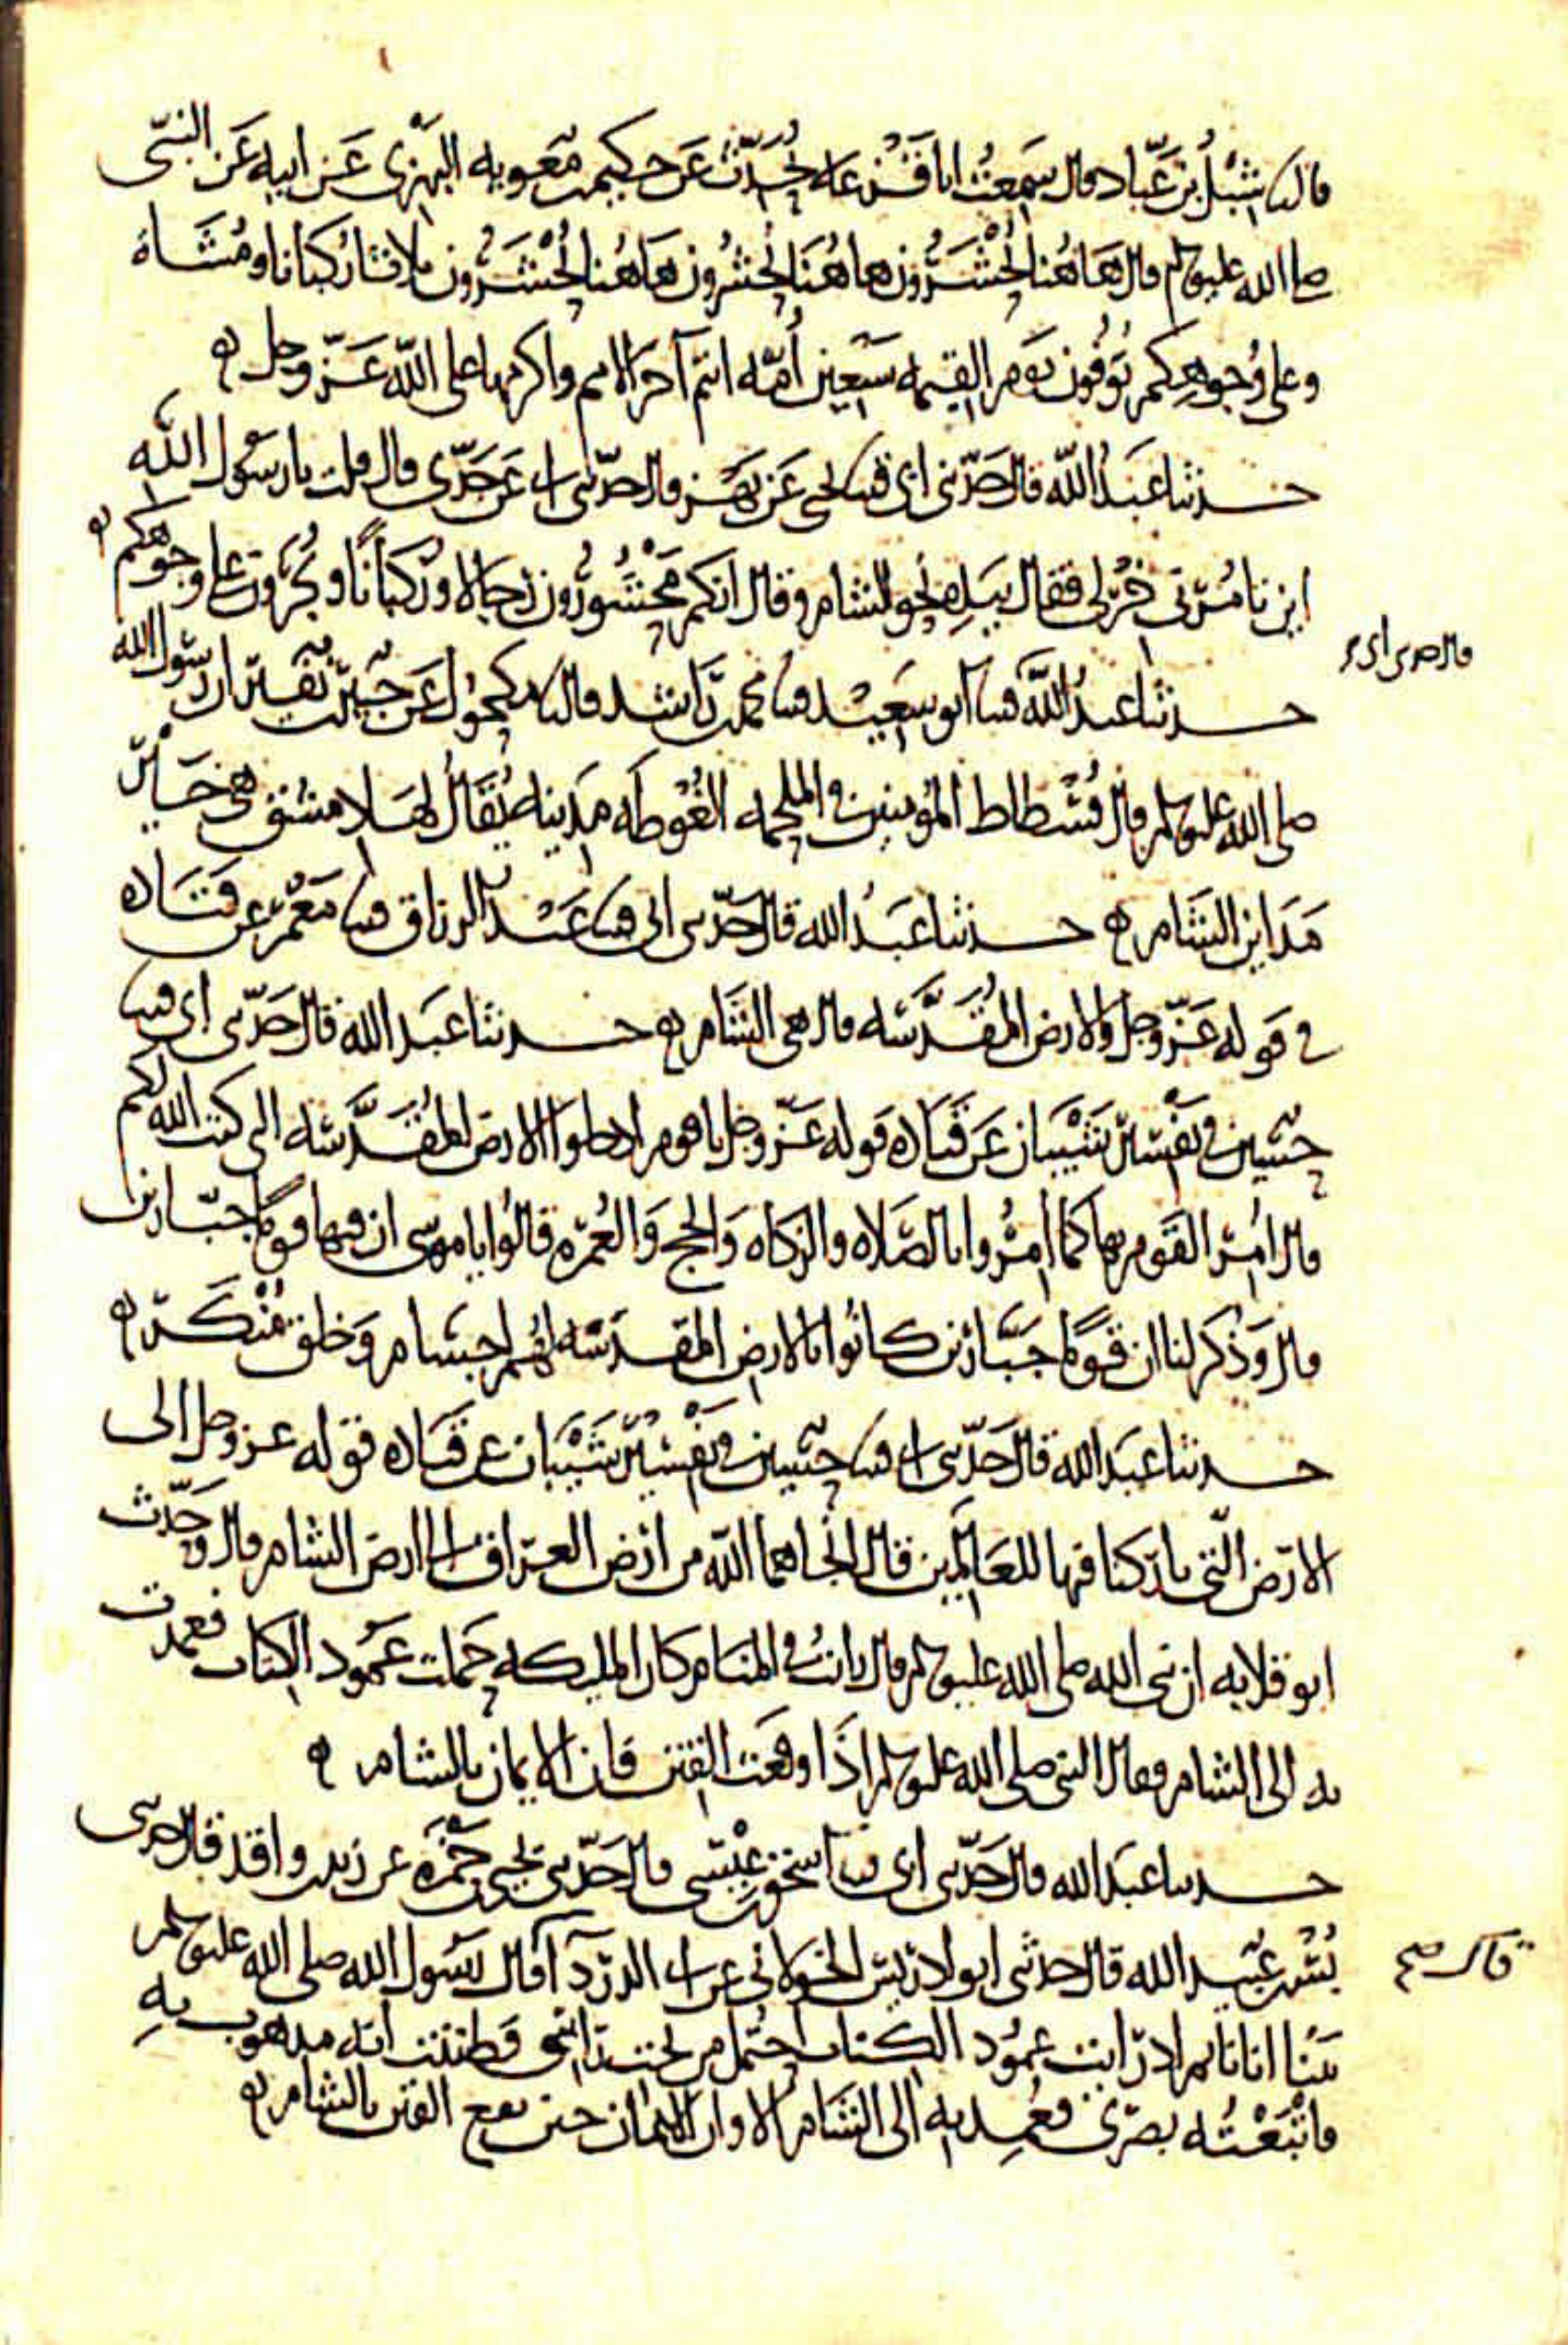 قال نا شبل بن عباد قال سمعت ابا قزعه يحدث عن حكيم بن معويه البهزي عن ابيه عن النبي
صلى الله عليه وسلم قال هاهنا تحشرون هاهنا تحشرون هاهنا تحشرون ثلاثا ركبانا ومشاة
وعلى وجوهكم توفون يوم القيمه سبعين أمة انتم آخر الامم واكرمها على الله عز وجل
حدثنا عبد الله قال حدثني ابي قثنا يحيى عن بهز قال حدثني ابي عن جدي قال قلت يا رسول الله
اين تامرني خر لي فقال بيده نحو الشام وقال انكم محشورون رجالا وركبانا وتجرون على وجوهكم
قال حدثني ابي
حدثنا عبد الله قثنا ابو سعيد قثنا محمد بن راشد قال نا مكحول عن جبير بن نفير ان رسول الله
صلى الله عليه وسلم قال فسطاط المؤمنين في الملحمه الغوطه مدينه يقال لها دمشق هي خير
مداين الشام حدثنا عبد الله قال حدثني ابي قثنا عبد الرزاق قثنا معمر عن قتاده
في قوله عز وجل والارض المقدسه قال هي الشام حدثنا عبد الله قال حدثني ابي قثنا
حسين في تفسير شيبان عن قتاده قوله عز وجل يا قوم ادخلوا الارض المقدسه التي كتب الله لكم
قال امر القوم بها كما امروا بالصلاه والزكاه والحج والعمره قالوا يا موسى ان فيها قوما جبارين
قال وذكر لنا ان قوما جبارين كانوا بالارض المقدسه لهم اجسام وخلق منكر
حدثنا عبد الله قال حدثني ابي قثنا حسين في تفسير شيبان عن قتاده قوله عز وجل الى
الارض التي باركنا فيها للعالمين قال انجاهما الله من ارض العراق الى ارض الشام قال وحدث
ابو قلابه ان نبي الله صلى الله عليه وسلم قال رايت في المنام كان المليكه حملت عمود الكتاب فعمدت
به الى الشام فقال النبي صلى الله عليه وسلم اذا وقعت الفتن فان الايمان بالشام
حدثنا عبد الله قال حدثني ابي قثنا اسحق بن عيسى قال حدثني يحيى بن حمزه عن زيد بن واقد قال حدثني
بسر بن عبيد الله قال حدثني ابو ادريس الخولاني عن ابي الدردآ قال رسول الله صلى الله عليه وسلم
بينا انا نايم اذ رايت عمود الكتاب احتمل من تحت راسي فظننت انه مذهوب به
فاتبعته بصري فعمد به الى الشام الا وان الايمان حين تقع الفتن بالشام